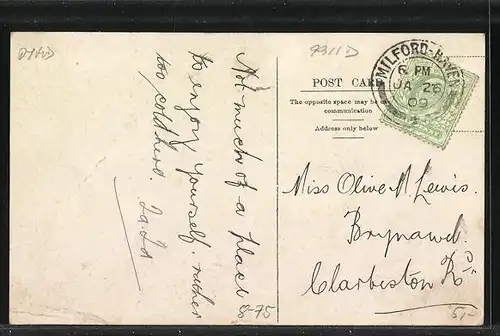 Not much of a place
to enjoy yourself. rather
too cold here.
8-75
POST CARD
The opposite space may be
communication
Address only below
MILFORD-HAVEN
6 PM
JA 26
09
Miss Olive M Lewis.
Clarbeston Rd
5,-